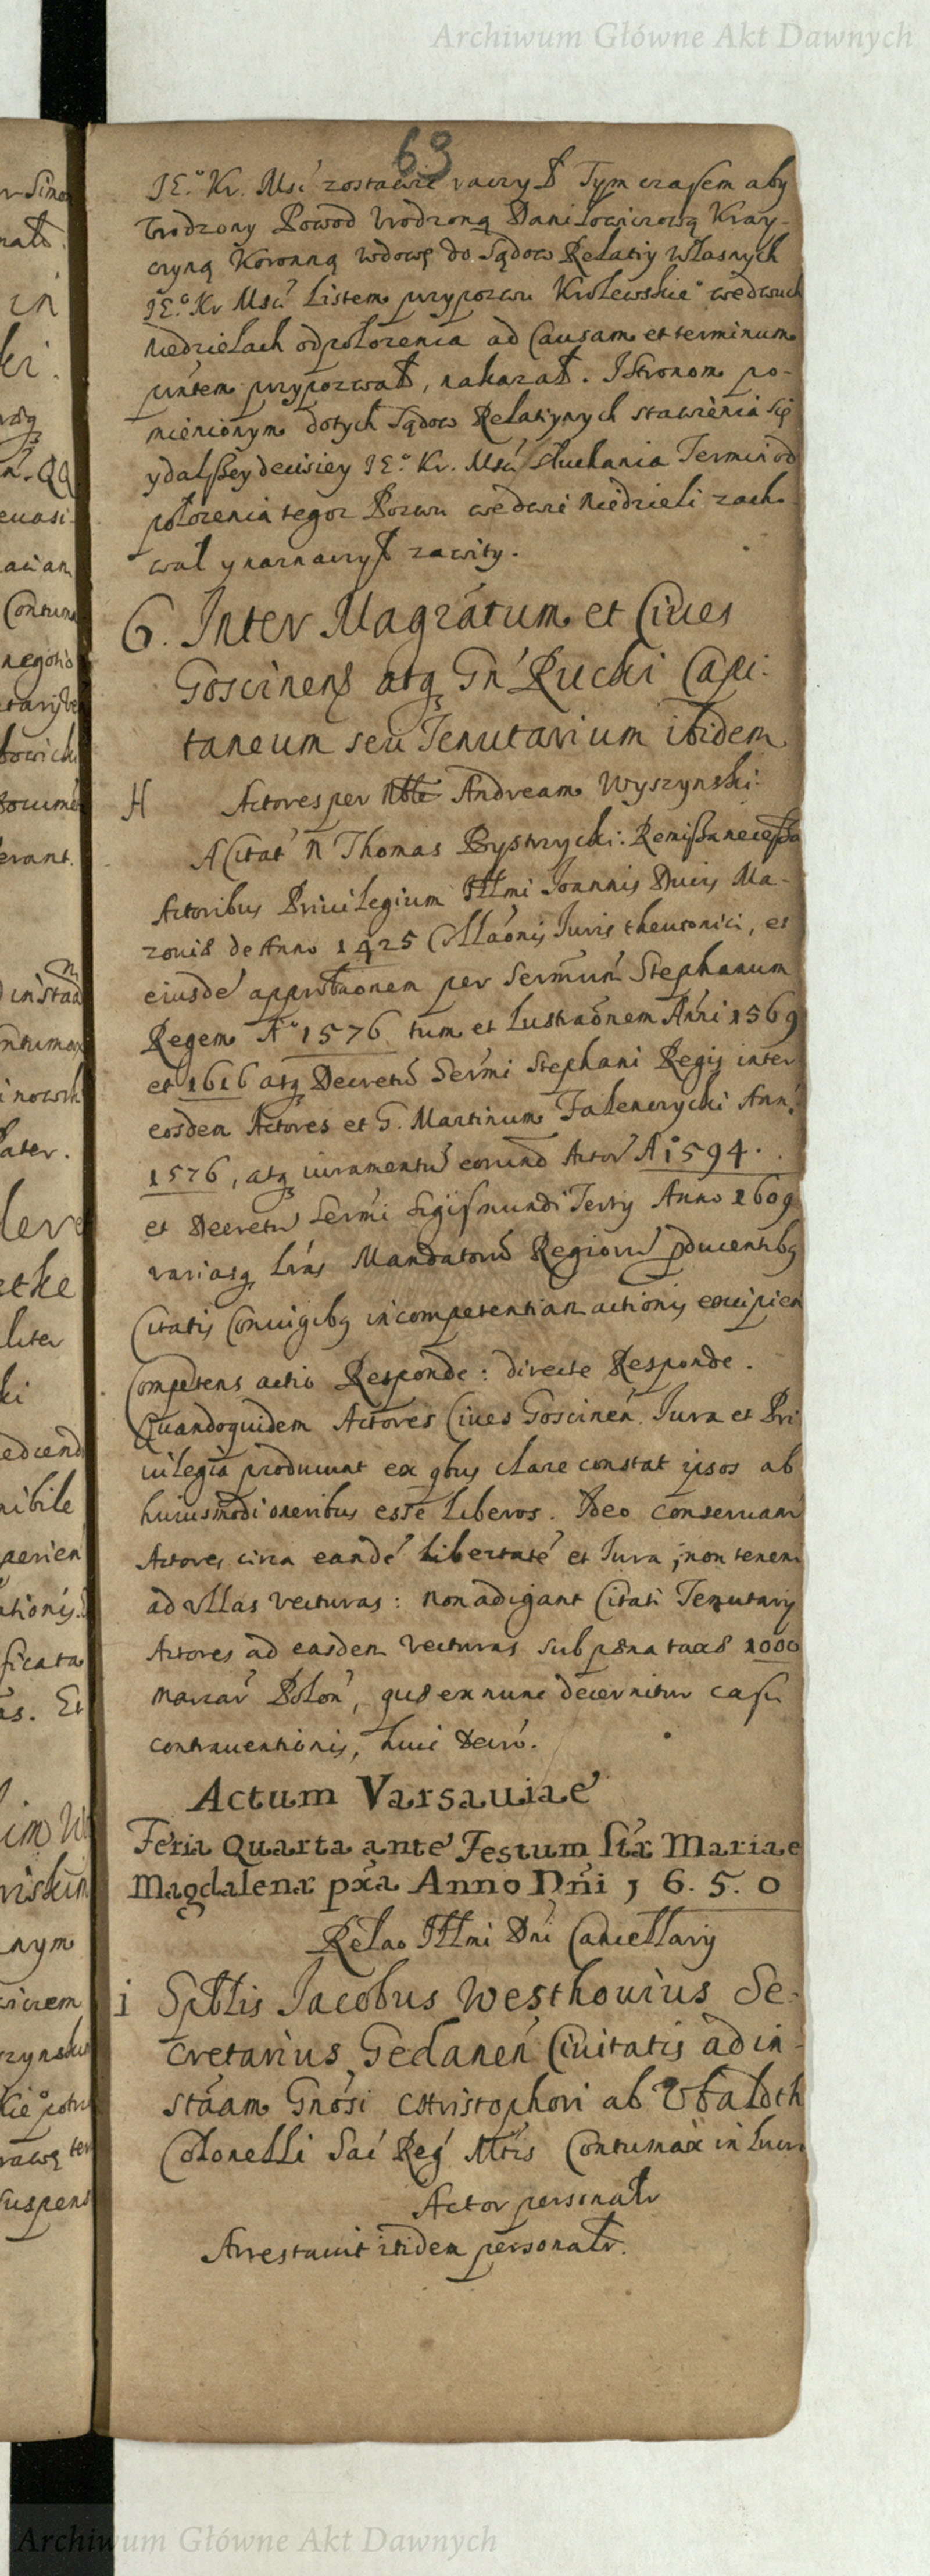 Archiwum Główne Akt Dawnych
63
JE.° Kr. Mśći zostawić raczył Tym czasem aby
Vrodzony Powod Vrodzoną Daniłowiczową Kray-
czyną Koronną wdowę do Sądow Relatiy własnych
JE.° Kr Mśći Listem przypozwu Krolewskie° wedwuch
niedzielach odpołozenia ad Causam et terminum
przypozwał, nakazał. Istronom po-
mienionym dotych Sądow Relatiynych stawienia się
ydalszey decisiey JE.° Kr. Mśći słuchania Termin od
połozenia tegoz Pozwu wedwie Niedzieli zacho
wał y naznaczył zawity.
6. Inter Magrātum et Ciues
Goscinens̄ atq Gn̄ Rucki Capi-
taneum seu Tenutarium ibidem
H Actores per Nble Andream Wyszynski:
A Citat̄ N Thomas Bystrzycki: Remissa necessa
Actoribus Priuilegium Illmi Joannis Ducis Ma-
zouiæ de Anno 1425 Collāonis Juris theutonici, et
eiusdē approbāonem per Sermūm Stephanum
Regem A° 1576 tum et Lustrāonem Anni 1569
et 1616 atq Decretū Sermi Stephani Regis inter
eosdem Actores et G. Martinum Falencrycki Ann.
1576, atq iuramentū eorund Actor A° 1594.
et Decretū Sermi Sigismundi Tertij Anno 1609
variasq Lrās Mandatorū Regiorū pducentibq
Citatis Coniugibq incompetentiam actionis excipien
Competens actio Responde: directe Responde.
Quandoquidem Actores Ciues Goscinen̄. Jura et Pri
uilegia producunt ex qbus clare constat ipsos ab
huiusmodi oneribus esse Liberos. Ideo conseruant̄
Actores circa eandē libertatē et Jura, non tenent̄
ad vllas vecturas: non adigant Citati Tenutarij
Actores ad easdem vecturas sub pœna taxæ 1000
marcar̄ Polon̄, quæ ex nunc decernitur casu
contrauentionis, huic Decrō.
Actum Varsauiae
Feria Quarta ante Festum Stæ Mariae
Magdalenæ pxa Anno Dni 1 6. 5. 0
Relao Illmi Dni Cancellarij
1 Spblis Jacobus Westhouius Se-
cretarius Gedanen̄ Ciuitatis ad in-
stāam Gnōsi Christophori ab Vbaldth
Colonelli Sac̄ Reḡ Mtis Contumax in Lucr̄
Actor personalr
Arrestauit itidem personalr.
Archiwum Główne Akt Dawnych